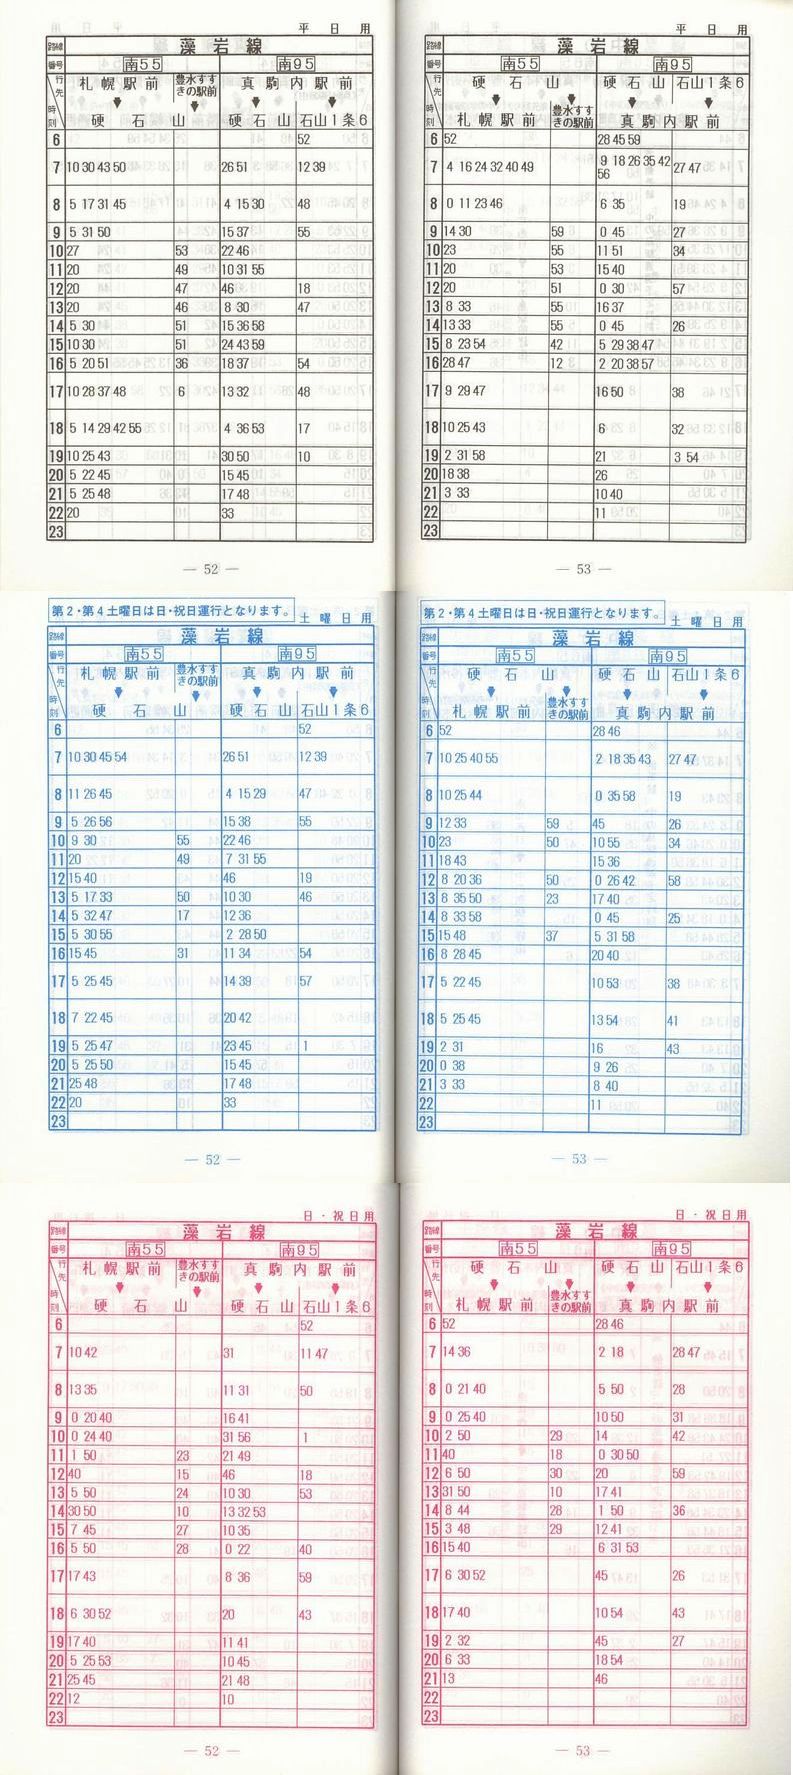 平日用
路線 藻岩線
番号 南55 南95
行先 札幌駅前 豊水すすきの駅前 真駒内駅前
時刻 硬石山 硬石山 石山1条6
6 52
7 10 30 43 50 26 51 12 39
8 5 17 31 45 4 15 30 48
9 5 31 50 15 37 55
10 27 53 22 46
11 20 49 10 31 55
12 20 47 46 18
13 20 46 8 30 47
14 5 30 51 15 36 58
15 10 30 51 24 43 59
16 5 20 51 36 18 37 54
17 10 28 37 48 6 13 32 48
18 5 14 29 42 55 4 36 53 17
19 10 25 43 30 50 10
20 5 22 45 15 45
21 5 25 48 17 48
22 20 33
23
— 52 —
平日用
路線 藻岩線
番号 南55 南95
行先 硬石山 硬石山 石山1条6
時刻 札幌駅前 豊水すすきの駅前 真駒内駅前
6 52 28 45 59
7 4 16 24 32 40 49 9 18 26 35 42 56 27 47
8 0 11 23 46 6 35 19
9 14 30 59 0 45 27
10 23 55 11 51 34
11 20 53 15 40
12 20 51 0 30 57
13 8 33 55 16 37
14 13 33 55 0 45 26
15 8 23 54 42 5 29 38 47
16 28 47 12 2 20 38 57
17 9 29 47 16 50 38
18 10 25 43 6 32
19 2 31 58 21 37 3 54
20 18 38 26
21 3 33 10 40
22 11
23
— 53 —
第2・第4土曜日は日・祝日運行となります。 土曜日用
路線 藻岩線
番号 南55 南95
行先 札幌駅前 豊水すすきの駅前 真駒内駅前
時刻 硬石山 硬石山 石山1条6
6 52
7 10 30 45 54 26 51 12 39
8 11 26 45 4 15 29 47
9 5 26 56 15 38 55
10 9 30 55 22 46
11 20 49 7 31 55
12 15 40 46 19
13 5 17 33 50 10 30 46
14 5 32 47 17 12 36
15 5 30 55 2 28 50
16 15 45 31 11 34 54
17 5 25 45 14 39 57
18 7 22 45 20 42
19 5 25 47 23 45 1
20 5 25 50 15 45
21 25 48 17 48
22 20 33
23
— 52 —
第2・第4土曜日は日・祝日運行となります。 土曜日用
路線 藻岩線
番号 南55 南95
行先 硬石山 硬石山 石山1条6
時刻 札幌駅前 豊水すすきの駅前 真駒内駅前
6 52 28 46
7 10 25 40 55 2 18 35 43 27 47
8 10 25 44 0 35 58 19
9 12 33 59 45 26
10 23 50 10 55 34
11 18 43 15 36
12 8 20 36 50 0 26 42 58
13 8 35 50 23 17 40
14 8 33 58 0 45 25
15 15 48 37 5 31 58
16 8 28 45 20 40
17 5 22 45 10 53 38
18 5 25 45 13 54 41
19 2 31 16 43
20 0 38 9 26
21 3 33 8 40
22 11
23
— 53 —
日・祝日用
路線 藻岩線
番号 南55 南95
行先 札幌駅前 豊水すすきの駅前 真駒内駅前
時刻 硬石山 硬石山 石山1条6
6 52
7 10 42 31 11 47
8 13 35 11 31 50
9 0 20 40 16 41
10 0 24 40 31 56 1
11 1 50 23 21 49
12 40 15 46 18
13 5 50 24 10 30 53
14 30 50 10 13 32 53
15 7 45 27 10 35
16 5 50 28 0 22 40
17 17 43 8 36 59
18 6 30 52 20 43
19 17 40 11 41
20 5 25 53 10 45
21 25 45 21 48
22 12 10
23
— 52 —
日・祝日用
路線 藻岩線
番号 南55 南95
行先 硬石山 硬石山 石山1条6
時刻 札幌駅前 豊水すすきの駅前 真駒内駅前
6 52 28 46
7 14 36 2 18 28 47
8 0 21 40 5 50 28
9 0 25 40 10 50 31
10 2 50 29 14 42
11 40 18 0 30 50
12 6 50 30 20 59
13 31 50 10 17 41
14 8 44 28 1 50 36
15 3 48 29 12 41
16 15 40 6 31 53
17 6 30 52 45 26
18 17 40 10 54 43
19 2 32 45 27
20 6 33 18 54
21 13 46
22
23
— 53 —